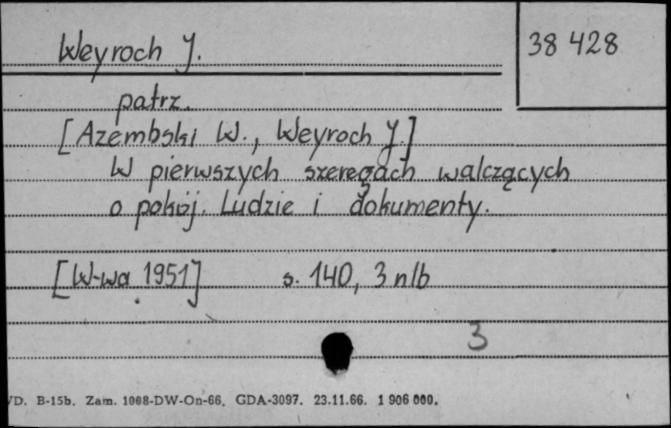 Weyroch J.
38 428
patrz.
[Azembski W., Weyroch J.]
W pierwszych szeregach walczących
o pokój. Ludzie i dokumenty.
[W-wa 1951] s. 140, 3 nlb
3
D. B-15b. Zam. 1068-DW-On-66. GDA-3097. 23.11.66. 1 906 000.